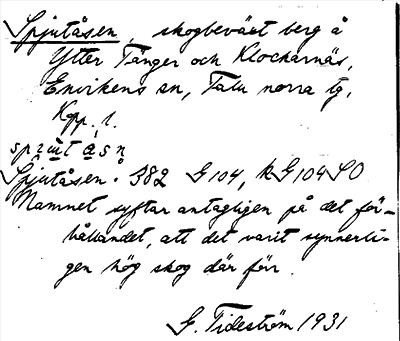 Spjutåsen, skogbeväxt berg å
Ytter Tänger och Klockarnäs,
Envikens sn, Falu norra tg,
Kpp. 1.
Spjutåsen. 382 G 104, kG 104 SO
Namnet syftar antagligen på det för-
hållandet, att det varit synnerli-
gen hög skog där förr.
G. Tideström 1931